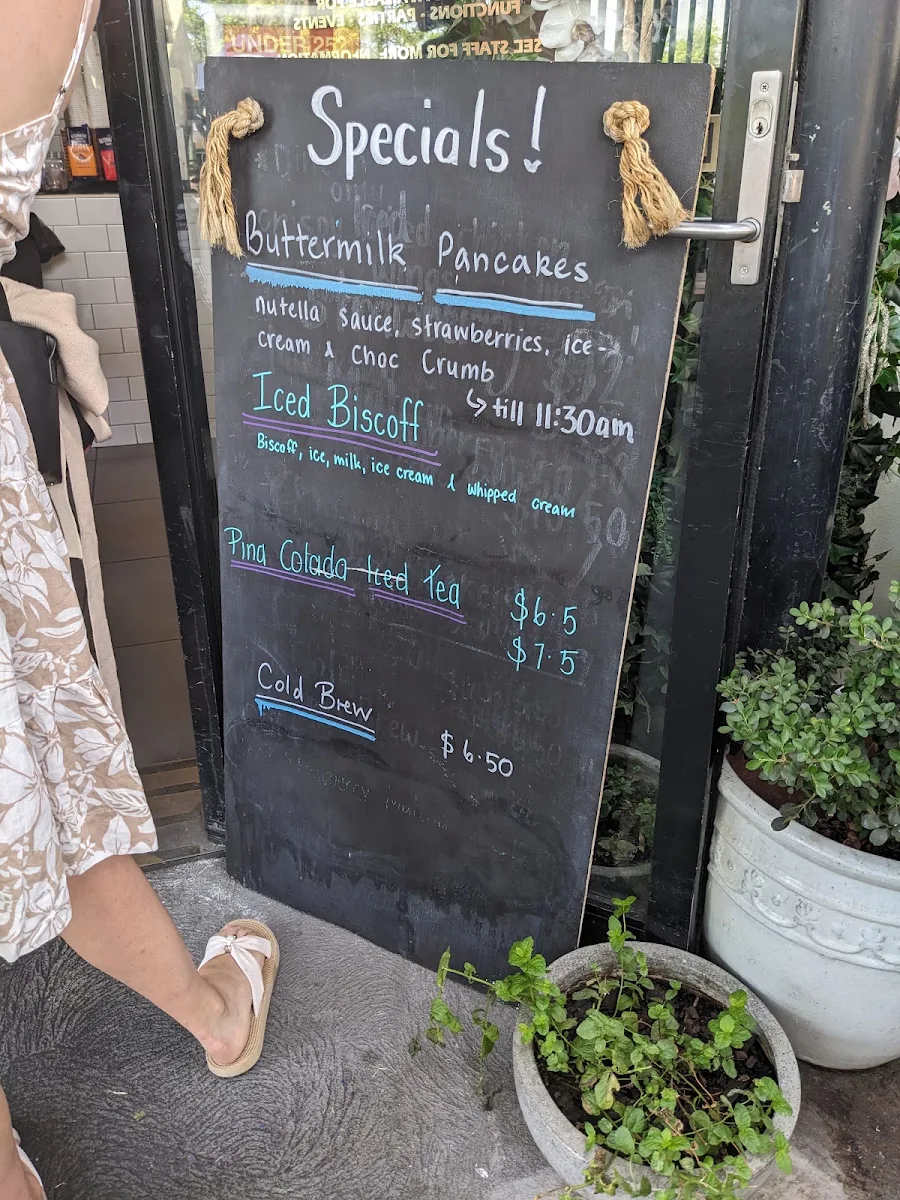 FUNCTIONS - PARTIES - EVENTS
UNDER 25s
SEE STAFF FOR MORE INFORMATION
Specials!
Buttermilk Pancakes
nutella sauce, strawberries, ice-
cream & Choc Crumb
↳ till 11:30am
Iced Biscoff
Biscoff, ice, milk, ice cream & whipped cream
Pina Colada Iced Tea
$6.5
$7.5
Cold Brew
$6.50